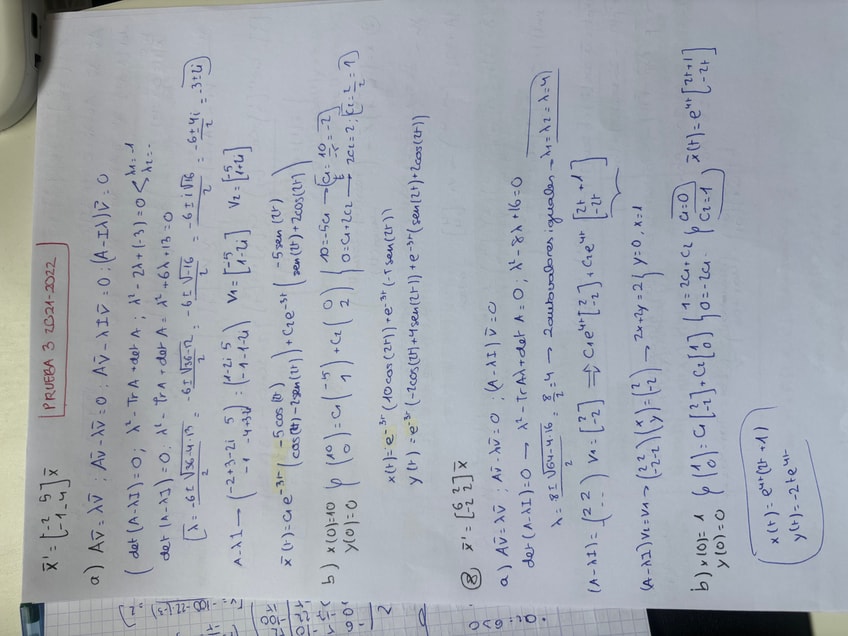 PRUEBA 3 2021-2022
x̄' = [-2 5; -1 -4] x̄
a) Av̄=λv̄ ; Av̄-λv̄=0 ; Av̄-λIv̄=0 ; (A-Iλ)v̄=0
(det(A-λI)=0; λ²-TrA+det A; λ²-2λ+(-3)=0 < λ1=-1 λ2=-
det(A-λI)=0; λ²-TrA+det A = λ²+6λ+13=0
λ = (-6±√(36-4·13))/2 = (-6±√(36-52))/2 = (-6±√-16)/2 = (-6±i√16)/2 = (-6±4i)/2 = -3±2i
A-λI → (-2+3-2i 5; -1 -4+3-2i) (1-2i 5; -1 -1-2i) V1=[-5; 1-2i] V2=[-5; 1+2i]
x̄(t)=C1e^-3t (-5cos(2t); cos(2t)-2sen(2t)) + C2e^-3t (-5sen(2t); sen(2t)+2cos(2t))
b) x(0)=10
y(0)=0
(10; 0) = C1(-5; 1) + C2(0; 2) { 10=-5C1 → C1=10/-5=-2
0=C1+2C2 → 2C2=2; C2=2/2=1
x(t)=e^-3t(10cos(2t))+e^-3t(-5sen(2t))
y(t)=e^-3t(-2cos(2t)+4sen(2t))+e^-3t(sen(2t)+2cos(2t))
8 x̄'=[6 2; -2 2]x̄
a) Av̄=λv̄ ; Av̄-λv̄=0 ; (A-λI)v̄=0
det(A-λI)=0 → λ²-TrAλ+det A=0; λ²-8λ+16=0
λ=(8±√(64-4·16))/2=8/2=4 → 2 autovalores iguales → λ1=λ2=λ=4
(A-λI)=(2 2; - -) V1=[2; -2] ⇒ C1e^4t[2; -2]+C2e^4t[2t+1; -2t]
(A-λI)V2=V1 → (2 2; -2 -2)(x; y)=(2; -2) → 2x+2y=2 { y=0, x=1
b) x(0)=1
y(0)=0
(1; 0)=C1[2; -2]+C2[1; 0] { 1=2C1+C2
0=-2C1
C1=0
C2=1
x̄(t)=e^4t[2t+1; -2t]
x(t)=e^4t(2t+1)
y(t)=-2te^4t